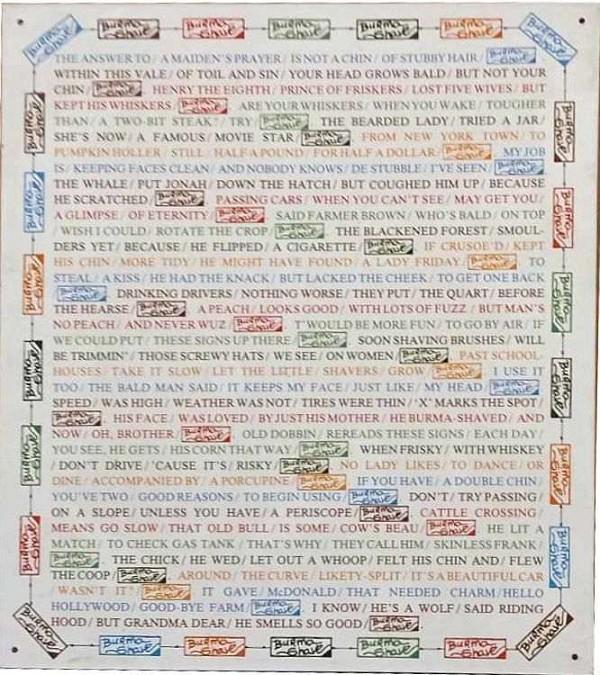 Burma-Shave Burma-Shave Burma-Shave Burma-Shave Burma-Shave Burma-Shave Burma-Shave
THE ANSWER TO / A MAIDEN'S PRAYER / IS NOT A CHIN / OF STUBBY HAIR / Burma-Shave
WITHIN THIS VALE / OF TOIL AND SIN / YOUR HEAD GROWS BALD / BUT NOT YOUR
CHIN / Burma-Shave HENRY THE EIGHTH / PRINCE OF FRISKERS / LOST FIVE WIVES / BUT
KEPT HIS WHISKERS / Burma-Shave ARE YOUR WHISKERS / WHEN YOU WAKE / TOUGHER
THAN / A TWO-BIT STEAK? / TRY / Burma-Shave THE BEARDED LADY / TRIED A JAR /
SHE'S NOW / A FAMOUS / MOVIE STAR / Burma-Shave FROM NEW YORK TOWN / TO
PUMPKIN HOLLER / STILL / HALF A POUND / FOR HALF A DOLLAR / Burma-Shave MY JOB
IS / KEEPING FACES CLEAN / AND NOBODY KNOWS / DE STUBBLE / I'VE SEEN / Burma-Shave
THE WHALE / PUT JONAH / DOWN THE HATCH / BUT COUGHED HIM UP / BECAUSE
HE SCRATCHED / Burma-Shave PASSING CARS / WHEN YOU CAN'T SEE / MAY GET YOU /
A GLIMPSE / OF ETERNITY / Burma-Shave SAID FARMER BROWN / WHO'S BALD / ON TOP
/ WISH I COULD / ROTATE THE CROP / Burma-Shave THE BLACKENED FOREST / SMOUL-
DERS YET / BECAUSE / HE FLIPPED / A CIGARETTE / Burma-Shave IF CRUSOE'D / KEPT
HIS CHIN / MORE TIDY / HE MIGHT HAVE FOUND / A LADY FRIDAY / Burma-Shave TO
STEAL / A KISS / HE HAD THE KNACK / BUT LACKED THE CHEEK / TO GET ONE BACK
/ Burma-Shave DRINKING DRIVERS / NOTHING WORSE / THEY PUT / THE QUART / BEFORE
THE HEARSE / Burma-Shave A PEACH / LOOKS GOOD / WITH LOTS OF FUZZ / BUT MAN'S
NO PEACH / AND NEVER WUZ / Burma-Shave T'WOULD BE MORE FUN / TO GO BY AIR / IF
WE COULD PUT / THESE SIGNS UP THERE / Burma-Shave SOON SHAVING BRUSHES / WILL
BE TRIMMIN' / THOSE SCREWY HATS / WE SEE / ON WOMEN / Burma-Shave PAST SCHOOL-
HOUSES / TAKE IT SLOW / LET THE LITTLE / SHAVERS / GROW / Burma-Shave I USE IT
TOO / THE BALD MAN SAID / IT KEEPS MY FACE / JUST LIKE / MY HEAD / Burma-Shave
SPEED / WAS HIGH / WEATHER WAS NOT / TIRES WERE THIN / 'X' MARKS THE SPOT
/ Burma-Shave HIS FACE / WAS LOVED / BY JUST HIS MOTHER / HE BURMA-SHAVED / AND
NOW / OH, BROTHER / Burma-Shave OLD DOBBIN / REREADS THESE SIGNS / EACH DAY /
YOU SEE, HE GETS / HIS CORN THAT WAY / Burma-Shave WHEN FRISKY / WITH WHISKEY
/ DON'T DRIVE / 'CAUSE IT'S / RISKY / Burma-Shave NO LADY LIKES / TO DANCE / OR
DINE / ACCOMPANIED BY / A PORCUPINE / Burma-Shave IF YOU HAVE / A DOUBLE CHIN /
YOU'VE TWO / GOOD REASONS / TO BEGIN USING / Burma-Shave DON'T / TRY PASSING /
ON A SLOPE / UNLESS YOU HAVE / A PERISCOPE / Burma-Shave CATTLE CROSSING /
MEANS GO SLOW / THAT OLD BULL / IS SOME / COW'S BEAU / Burma-Shave HE LIT A
MATCH / TO CHECK GAS TANK / THAT'S WHY / THEY CALL HIM / SKINLESS FRANK /
Burma-Shave THE CHICK / HE WED / LET OUT A WHOOP / FELT HIS CHIN AND / FLEW
THE COOP / Burma-Shave AROUND / THE CURVE / LIKETY-SPLIT / IT'S A BEAUTIFUL CAR
/ WASN'T IT? / Burma-Shave IT GAVE / McDONALD / THAT NEEDED CHARM / HELLO
HOLLYWOOD / GOOD-BYE FARM / Burma-Shave I KNOW / HE'S A WOLF / SAID RIDING
HOOD / BUT GRANDMA DEAR / HE SMELLS SO GOOD / Burma-Shave
Burma-Shave Burma-Shave Burma-Shave Burma-Shave Burma-Shave Burma-Shave Burma-Shave
Burma-Shave
Burma-Shave
Burma-Shave
Burma-Shave
Burma-Shave
Burma-Shave
Burma-Shave
Burma-Shave
Burma-Shave
Burma-Shave
Burma-Shave
Burma-Shave